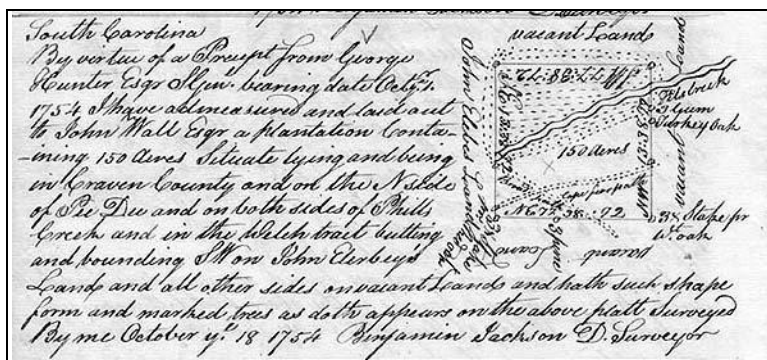 South Carolina
By virtue of a Precept from George
Hunter Esqr SGen. bearing date Octyr 1.
1754 I have admeasured and laid out
to John Wall Esqr a plantation Conta-
-ining 150 Acres Situate lying and being
in Craven County and on the N side
of Pee Dee and on both sides of Phills
Creek and in the Welch tract butting
and bounding SW on John Elerbeys
Land and all other sides on vacant Land and hath such shape
form and marked trees as doth appears on the above platt Surveyed
By me October ye. 18 1754 Benjamin Jackson D. Surveyor
vacant Land
John Elebes Land
150 Acres
vacant Land
Creek
Gum
Turkey Oak
3X Stake pr
Wt. oak
vacant Land